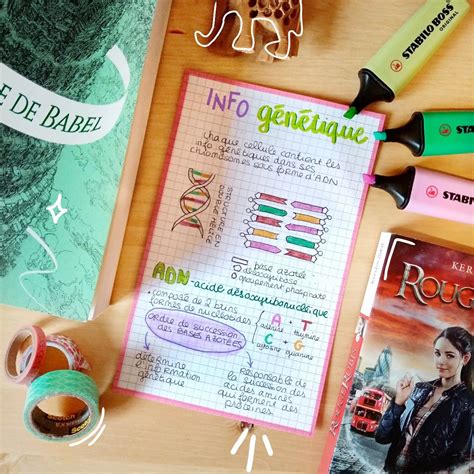 E DE BABEL
INFO génétique
Chaque cellule contient les
info génétiques dans ses
chromosomes sous forme d'ADN
STRUCTURE EN
DOUBLE HÉLICE
base azotée
désoxyribose
groupement phosphate
ADN - acide désoxyribonucléique
- composée de 2 brins
formés de nucléotides
A - T
adénine thymine
C - G
cytosine guanine
ORDRE DE SUCCESSION
DES BASES AZOTÉES
détermine
l'information
génétique
Responsable de
la succession des
acides aminés
qui forment des
protéines.
STABILO BOSS
ORIGINAL
STABILO BOSS
STABILO BOSS
KER
ROUG
Scotch